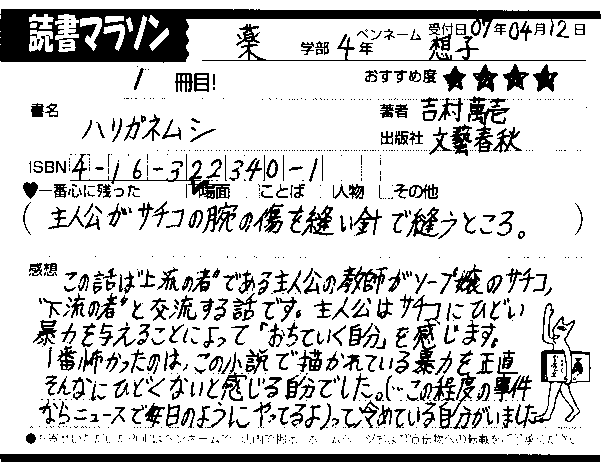 読書マラソン
薬 学部 4年 ペンネーム 想子 受付日 07年04月12日
1 冊目! おすすめ度 ★★★★
書名 ハリガネムシ 著者 吉村萬壱
出版社 文藝春秋
ISBN 4-16-322340-1
♥一番心に残った 場面 ことば 人物 その他
(主人公がサチコの腕の傷を縫い針で縫うところ。)
感想 この話は"上流の者"である主人公の教師がソープ嬢のサチコ,
"下流の者"と交流する話です。主人公はサチコにひどい
暴力を与えることによって「おちていく自分」を感じます。
1番怖かったのは,この小説で描かれている暴力を正直
そんなにひどくないと感じる自分でした。(…この程度の事件
ならニュースで毎日のようにやってるよ)って冷めている自分がいました。